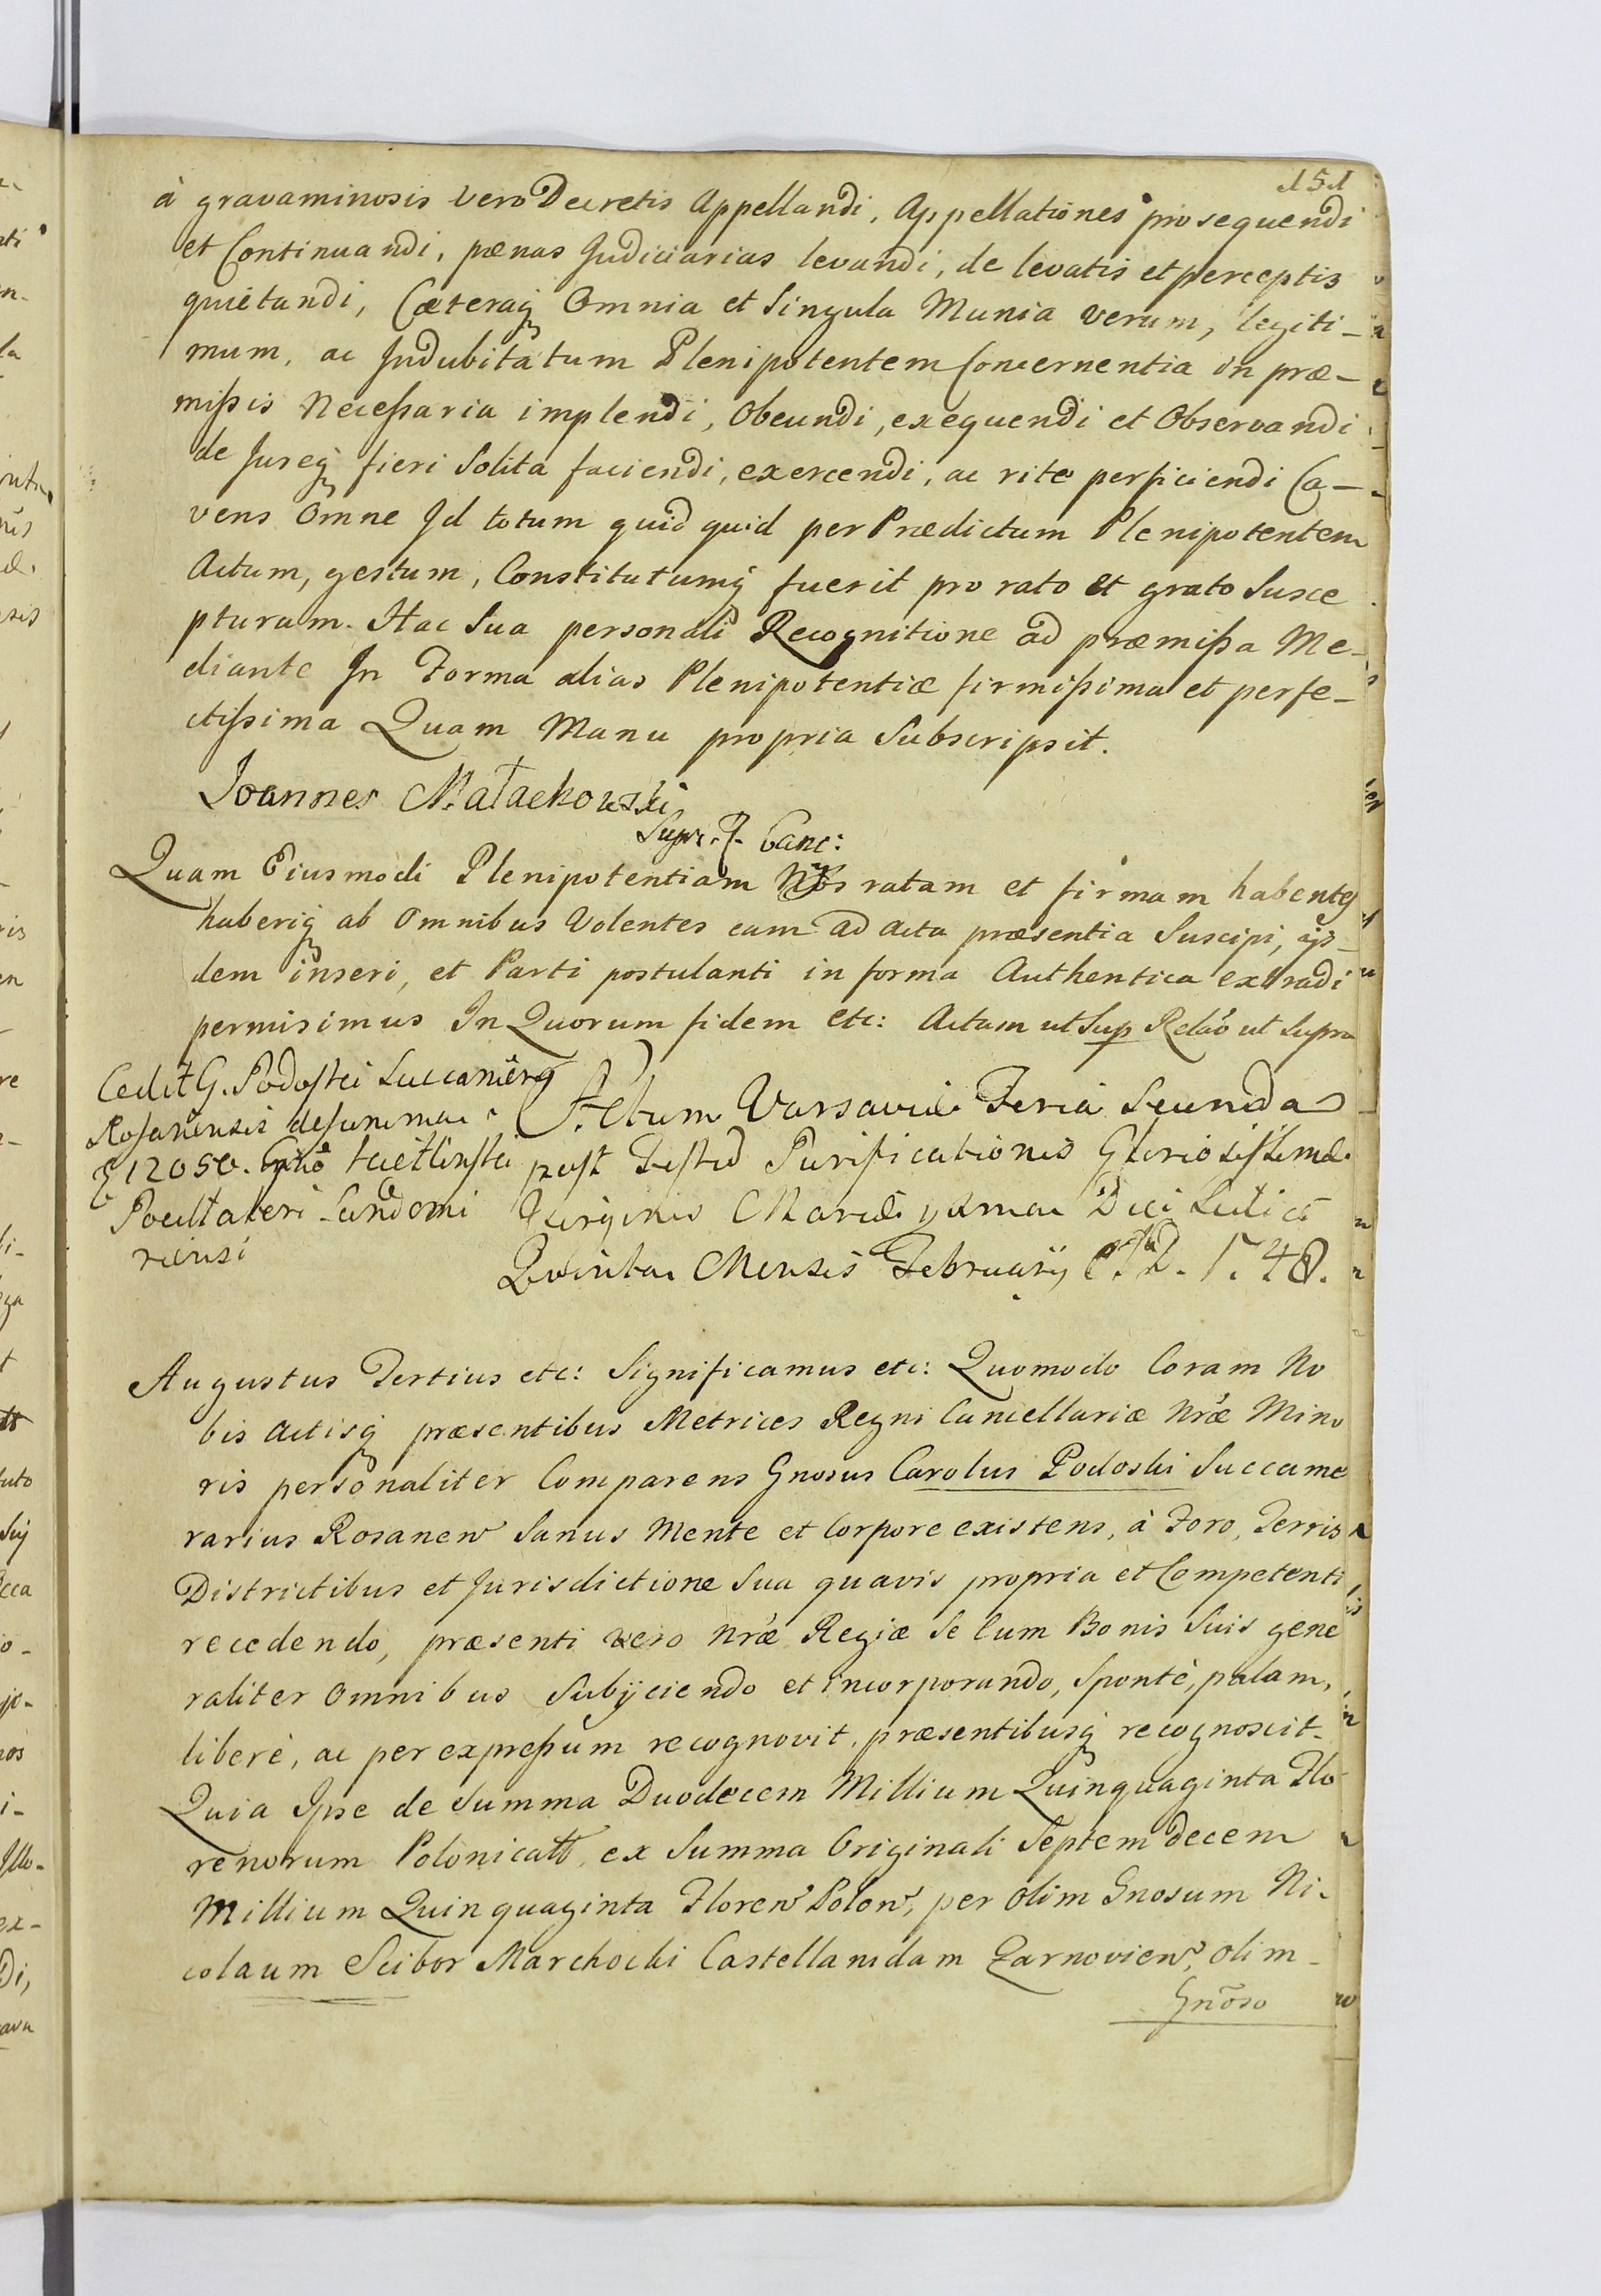 151
à gravaminosis vero Decretis Appellandi, Appellationes prosequendi
et Continuandi, pœnas Judiciarias levandi, de levatis et perceptis
quietandi, Cæteraq Omnia et Singula Munia verum, legiti-
mum, ac Indubitatum Plenipotentem Concernentia in præ-
mißis Neceßaria implendi, Obeundi, exequendi et Observandi
de Jureq fieri Solita faciendi, exercendi, ac rite perficiendi Ca-
vens Omne Id totum quid quid per Prædictum Plenipotentem
Actum, gestum, Constitutumq fuerit pro rato et grato Susce
pturum. Hac Sua personali Recognitione ad præmißa Me-
diante In Forma alias Plenipotentiæ firmißima et perfe-
ctißima Quam Manu propria Subscripsit.
Joannes Małachowski
Supr. R. Canc:
Quam Eiusmodi Plenipotentiam Nos ratam et firmam habentes
haberiq ab Omnibus Volentes eam ad Acta præsentia Suscipi, ijs-
dem inseri, et Parti postulanti in forma Authentica extradi
permisimus In Quorum fidem etc: Actum ut Sup Relão ut Supra
Cedit G. Podoski Succamerg
Rosanensis de summa
12050. Gnõ
Pocillatori Sandomi
riensi
Actum Varsaviæ Feria Secunda
post Festũ Purificationis Gloriosissimæ
Virginis Mariæ Die
Quinta Mensis February A. D. 1748.
Augustus Tertius etc: Significamus etc: Quomodo Coram No
bis Actisq præsentibus Metrices Regni Cancellariæ Nræ Mino
ris personaliter Comparens Gnosus Carolus Podoski Succame
rarius Rosanen Sanus Mente et Corpore existens, à Foro, Terris
Districtibus et Jurisdictione Sua quavis propria et Competenti
recedendo, præsenti vero Nræ Regiæ Se Cum Bonis Suis gene
raliter Omnibus Subijciendo et incorporando, Spontè, palam,
liberè, ac per expreßum recognovit, præsentibusq recognoscit.
Quia Ipse de Summa Duodecem Millium Quinquaginta Flo
renorum Polonicall, ex Summa Originali Septem decem
Millium Quinquaginta Floren Polon, per Olim Gnosum Ni-
colaum Scibor Marchocki Castellanidam Zarnovien, Olim
Gnõso